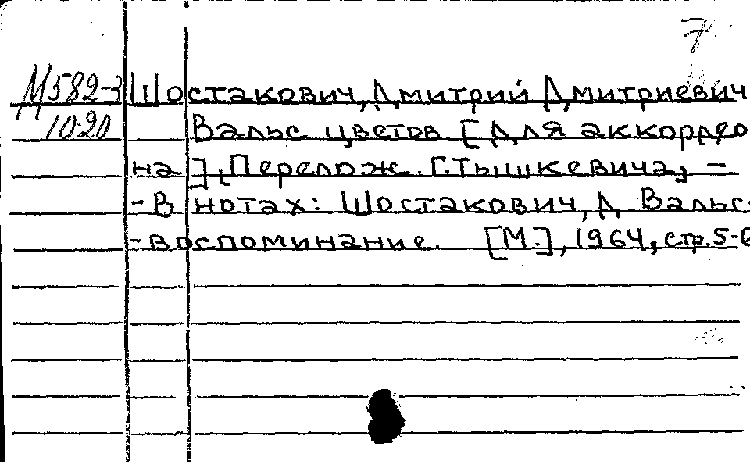 7
М582-3 Шостакович, Дмитрий Дмитриевич
10-20 Вальс цветов [для аккордео
на], Перелож. Г. Тышкевича, –
- В нотах: Шостакович, Д Вальс-
-воспоминание. [М.], 1964, стр. 5-6